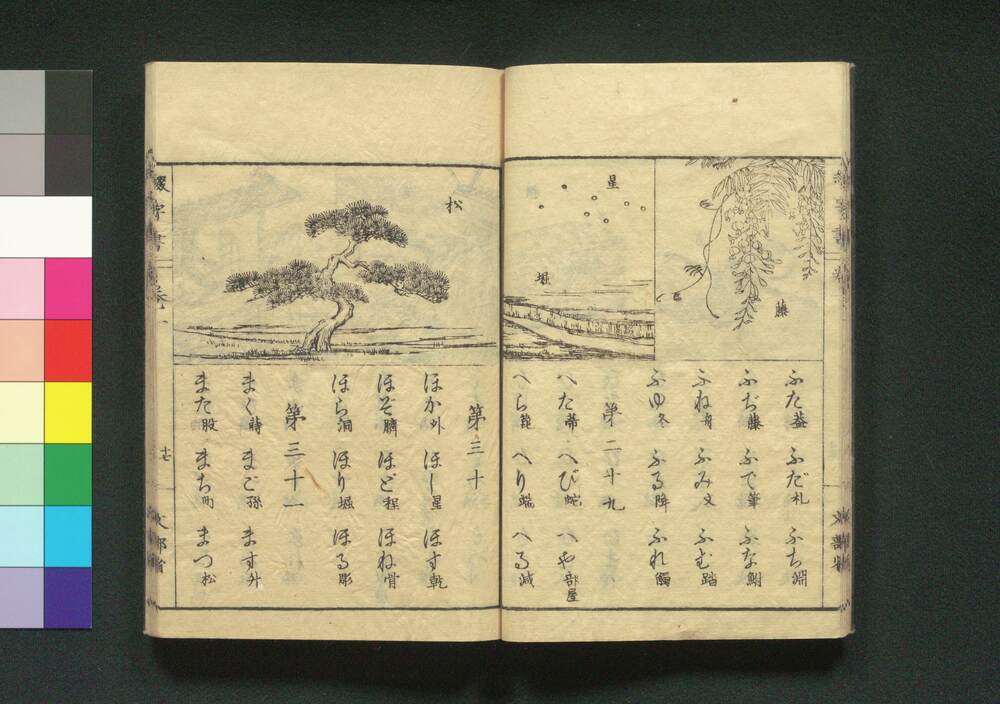 藤
星
堀
ふた 蓋 ふだ 札 ふち 淵
ふぢ 藤 ふで 筆 ふな 鮒
ふね 舟 ふみ 文 ふむ 踏
ふゆ 冬 ふる 降 ふれ 觸
第二十九
へた 蔕 へび 蛇 へや 部屋
へら 箆 へり 端 へる 減
松
第三十
ほか 外 ほし 星 ほす 乾
ほぞ 臍 ほど 程 ほね 骨
ほら 洞 ほり 堀 ほる 彫
第三十一
まく 蒔 まご 孫 ます 升
また 股 まち 町 まつ 松
綴字書
卷一
十七
文部省